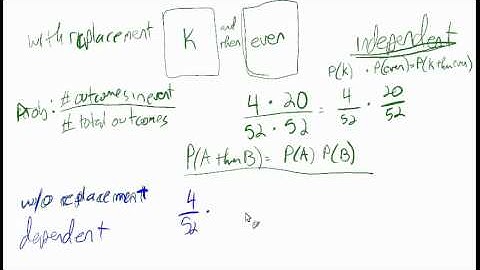 with replacement K and then even
independent
P(K) · P(even) = P(K then even)
Prob: # outcomes in event / # total outcomes
4 · 20 / 52 · 52 = 4/52 · 20/52
P(A then B) = P(A) P(B)
w/o replacement 4/52 ·
dependent